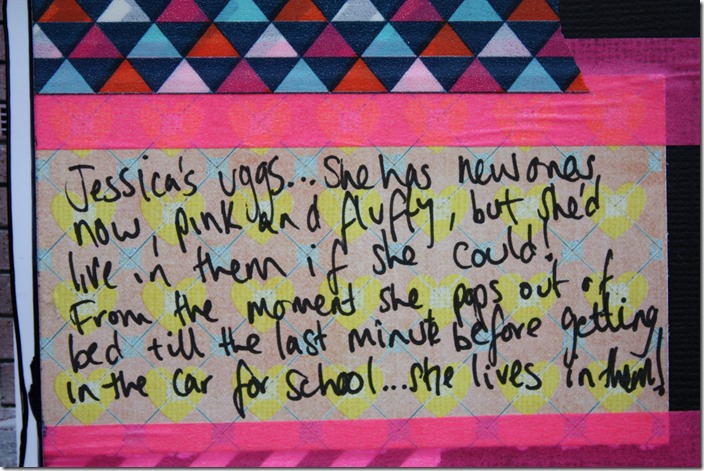 Jessica's uggs... She has new ones,
now, pink and fluffy, but she'd
live in them if she could!
From the moment she pops out of
bed till the last minute before getting
in the car for school... she lives in them!